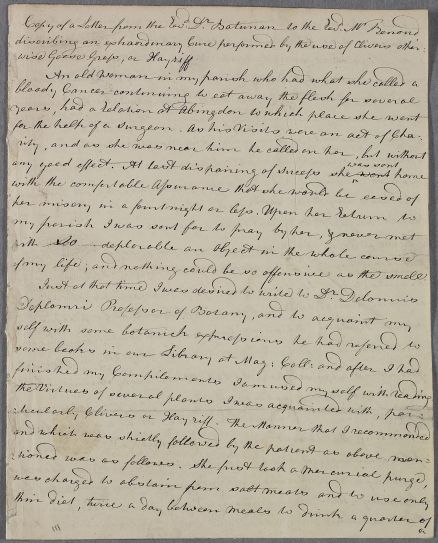 Copy of a Letter from the Revd. Dr. Bateman to the Revd. Mr.
discribing an extraordinary Cure performed by the use of Clivers other-
wise Goose Grass, or Hayriff
An old Woman in my parish who had what she called a
bloody Cancer continuing to eat away the flesh for several
years, had a relation at Abingdon to which place she went
for the help of a Surgeon. As his Visits were an act of Cha-
rity, and as she was near him he called on her, but without
any good effect. At last dispairing of success she went was sent home
with the comfortable assurance that she would be eased of
her misery in a fourtnight or less. Upon her Return to
my parish I was sent for to pray by her, & never met
with so deplorable an object in the whole course
of my life; and nothing could be so offensive as the smell
Just at that time I was desired to write to Dr.
Professor of Botany, and to acquaint my
self with some botanick expressions he had refered to
some books in our Library at Mag: Coll: and after I had
finished my Complements I amused my self with reading
the Virtues of several plants I was acquainted with, par-
ticularly Clivers or Hayriff. The Manner that I recommended
and which was strictly followed by the patient as above men-
tioned was as follows. She first took a mercurial purge,
was charged to abstain from salt meats and to use only
thin diet, twice a day between meals to drink a quarter of
a